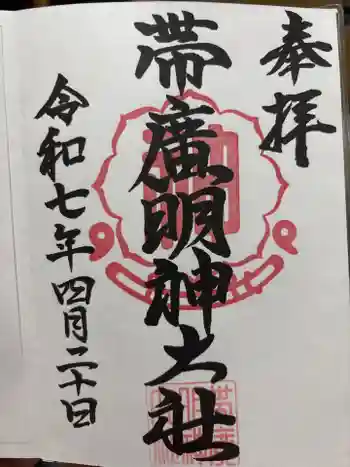 奉拝
帯廣明神大社
令和七年四月二十日